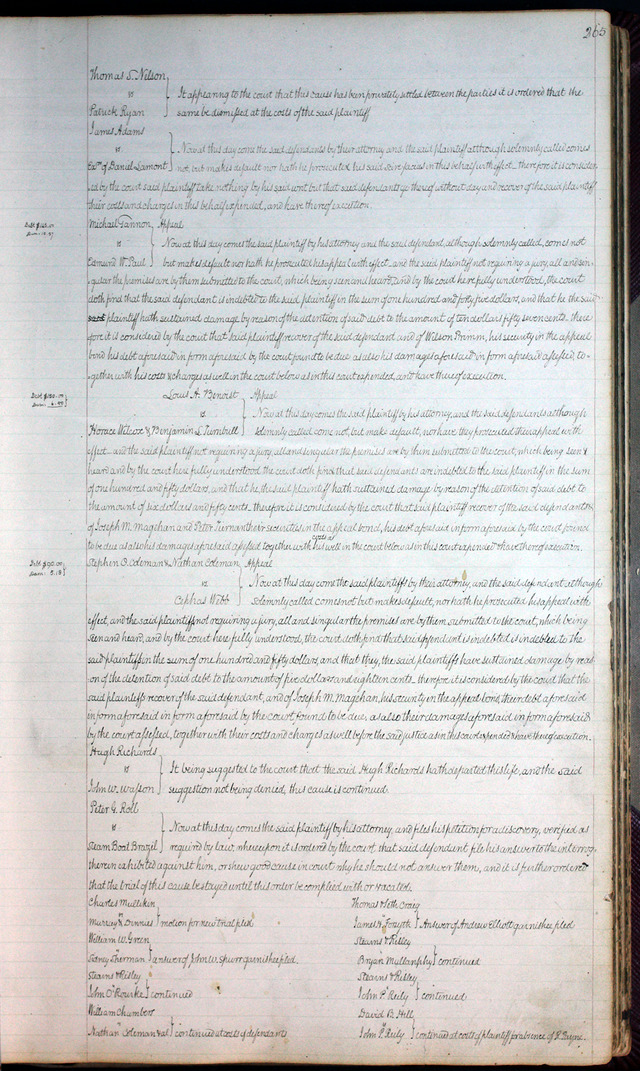 265
Thomas S. Nelson
vs
Patrick Ryan
It appearing to the court that this cause has been privately settled between the parties it is ordered that the
same be dismissed at the costs of the said plaintiff
James Adams
Exrs of Daniel Lamont
Now at this day come the said defendants by their attorney and the said plaintiff although solemnly called comes
not, but makes default nor hath he prosecuted his said scire facias in this behalf with effect therefore it is consider-
ed by the court said plaintiff take nothing by his said writ but that said defendants go thereof without day and recover of the said plaintiff
their costs and charges in this behalf expended, and have thereof execution.
Debt $145.00
Michael Tannon
vs
Edmund W. Paul
Appeal
Now at this day comes the said plaintiff by his attorney and the said defendant, although solemnly called, comes not
but makes default nor hath he prosecuted his appeal with effect and the said plaintiff not requiring a jury, all and sin-
gular the premises are by them submitted to the court, which being seen and heard, and by the court here fully understood, the court
doth find that the said defendant is indebted to the said plaintiff in the sum of one hundred and forty five dollars, and that he the said
plaintiff hath sustained damage by reason of the detention of said debt to the amount of ten dollars fifty seven cents, there
fore it is considered by the court that said plaintiff recover of the said defendant and of Wilson Primm, his security in the appeal
bond his debt aforesaid in form aforesaid by the court found to be due as also his damages aforesaid in form aforesaid assessed to-
gether with his costs & charges as well in the court below as in this court expended, and have thereof execution.
Debt $150.00
Louis A. Benoist
vs
Horace Wilcox & Benjamin S. Turnbull
Appeal
Now at this day comes the said plaintiff by his attorney, and the said defendants although
solemnly called come not, but make default, nor have they prosecuted their appeal with
effect and the said plaintiff not requiring a jury, all and singular the premises are by them submitted to the court, which being seen &
heard and by the court here fully understood the court doth find that said defendants are indebted to the said plaintiff in the sum
of one hundred and fifty dollars, and that he the said plaintiff hath sustained damage by reason of the detention of said debt to
the amount of six dollars and fifty cents. therefore it is considered by the court that said plaintiff recover of the said defendants &
of Joseph M. Magehan and Peter Turnan their securities in the appeal bond, his debt aforesaid in form aforesaid by the court found
to be due as also his damages aforesaid assessed together with his costs as well in the court below as in this court expended & have thereof execution.
Debt
Dam. 5.18
Stephen O. Coleman & Nathan Coleman
vs
Cephas Webb
Appeal
Now at this day come the said plaintiffs by their attorney, and the said defendant although
solemnly called comes not but makes default, nor hath he prosecuted his appeal with
effect, and the said plaintiffs not requiring a jury, all and singular the premises are by them submitted to the court, which being
seen and heard, and by the court here fully understood, the court doth find that said defendant is indebted is indebted to the
said plaintiffs in the sum of one hundred and fifty dollars, and that they, the said plaintiffs have sustained damage by reas-
on of the detention of said debt to the amount of five dollars and eighteen cents. therefore it is considered by the court that the
said plaintiffs recover of the said defendant, and of Joseph M. Magehan, his security in the appeal bond, their debt aforesaid
in form aforesaid in form aforesaid by the court found to be due, as also their damages aforesaid in form aforesaid
by the court assessed, together with their costs and charges as well before the said justice as in this court expended & have thereof execution.
Hugh Richards
vs
John W. Watson
It being suggested to the court that the said Hugh Richards hath departed this life, and the said
suggestion not being denied, this cause is continued.
Peter G. Roll
vs
Steam Boat Brazil
Now at this day comes the said plaintiff by his attorney, and files his petition for a discovery, verified as
required by law, whereupon it is ordered by the court that said defendent file his answer to the interrog-
therein exhibited against him, or shew good cause in court why he should not answer them, and it is further ordered
that the trial of this cause be stayed until this order be complied with or vacated.
Charles Mullikin
vs
Murray & Dennies
motion for new trial pled
William W. Green
vs
Sidney Sherman
answer of John W. Spurr garnishee pled.
Stearns & Risley
vs
John O'Rourke
continued
William Chambers
vs
Nathan Coleman & al
continued at costs of defendants
Thomas & Seth Craig
vs
James Forsyth
Answer of Andrew Elliott garnishee pled
Stearns & Risley
Bryan Mullanphy
continued
Stearns & Risley
vs
John P. Reily
continued
David B. Hill
vs
John P. Reily
continued at costs of plaintiff for absence of P. Payne.